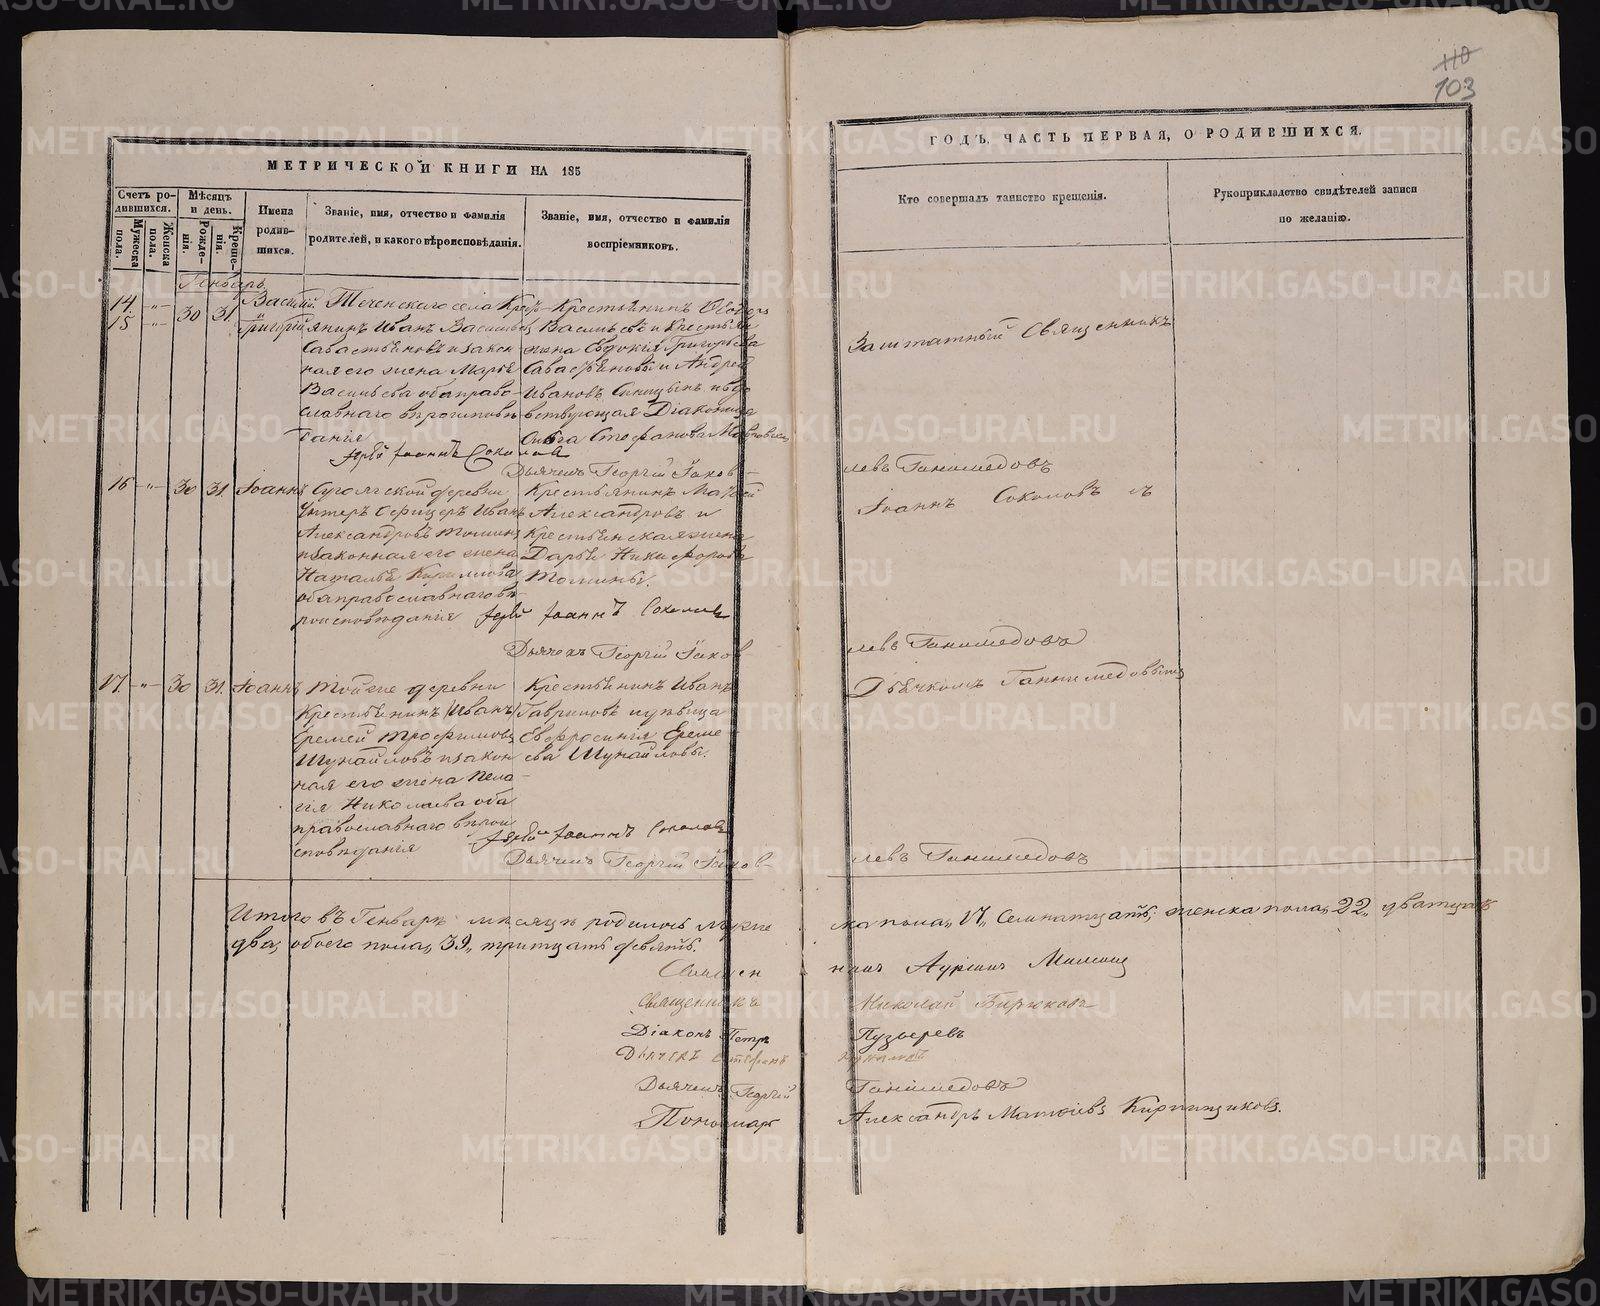 110
103
МЕТРИЧЕСКОЙ КНИГИ НА 185
ГОДЪ, ЧАСТЬ ПЕРВАЯ, О РОДИВШИХСЯ.
Счетъ родившихся.
Мужеска пола.
Женска пола.
Мѣсяцъ и день.
Рожденія.
Крещенія.
Имена родившихся.
Званіе, имя, отчество и фамилія родителей, и какого вѣроисповѣданія.
Званіе, имя, отчество и фамилія воспріемниковъ.
Кто совершалъ таинство крещенія.
Рукоприкладство свидѣтелей записи по желанію.
Генварь
14. -"- 30 31. Василій
15 -"- Григорій
Теченскаго села Крестьянинъ Иванъ Васильевъ
Савастьяновъ и закон
ная его жена Марья
Васильева оба право-
славнаго вѣроисповѣ
данія
Крестьянинъ Ѳедоръ
Васильевъ и крестьян
жена Евдокія Григорьева
Савастьяновы и Андрей
Ивановъ Синицынъ и вдо
вствующая Діаконица
Стефанова
Іерей Іоаннъ Соколовъ
Дьячекъ Георгій Яков-
левъ Ганимедовъ
Заштатный Священникъ
Іоаннъ Соколовъ съ
Дьячкомъ Ганимедовымъ
16 -"- 30 31. Іоаннъ
Сугоякской деревни
Унтеръ Офицеръ Иванъ
Александровъ Томинъ
и законная его жена
Наталья Кирилова
оба православнаго вѣ
роисповѣданія
Крестьянинъ Матвей
Александровъ и
Крестьянская жена
Дарья Никифорова
Томины.
Іерей Іоаннъ Соколовъ
Дьячекъ Георгій Яков
левъ Ганимедовъ
17. -"- 30 31. Іоаннъ
Той же деревни
Крестьянинъ Иванъ
Еремей Трофимовъ
Шунайловъ и закон
ная его жена Пела-
гія Николаева оба
православнаго вѣрои
сповѣданія
Крестьянинъ Иванъ
Гавриловъ и дѣвица
Евфросинія Ереме-
ева Шунайловы.
Іерей Іоаннъ Соколовъ
Дьячекъ Георгій Яков-
левъ Ганимедовъ
Итого въ Генварѣ мѣсяцѣ родилось мужеска пола „17„ Семнатцать, женска пола „22„ дватцать
два, обоего пола „39„ тритцать девять.
Священ никъ
Священникъ Николай Бирюковъ
Діаконъ Петръ Пузыревъ
Дьячекъ Стефанъ
Дьячекъ Георгій Ганимедовъ
Пономарь Александръ Матѳіевъ Кирпищиковъ.
METRIKI.GASO-URAL.RU